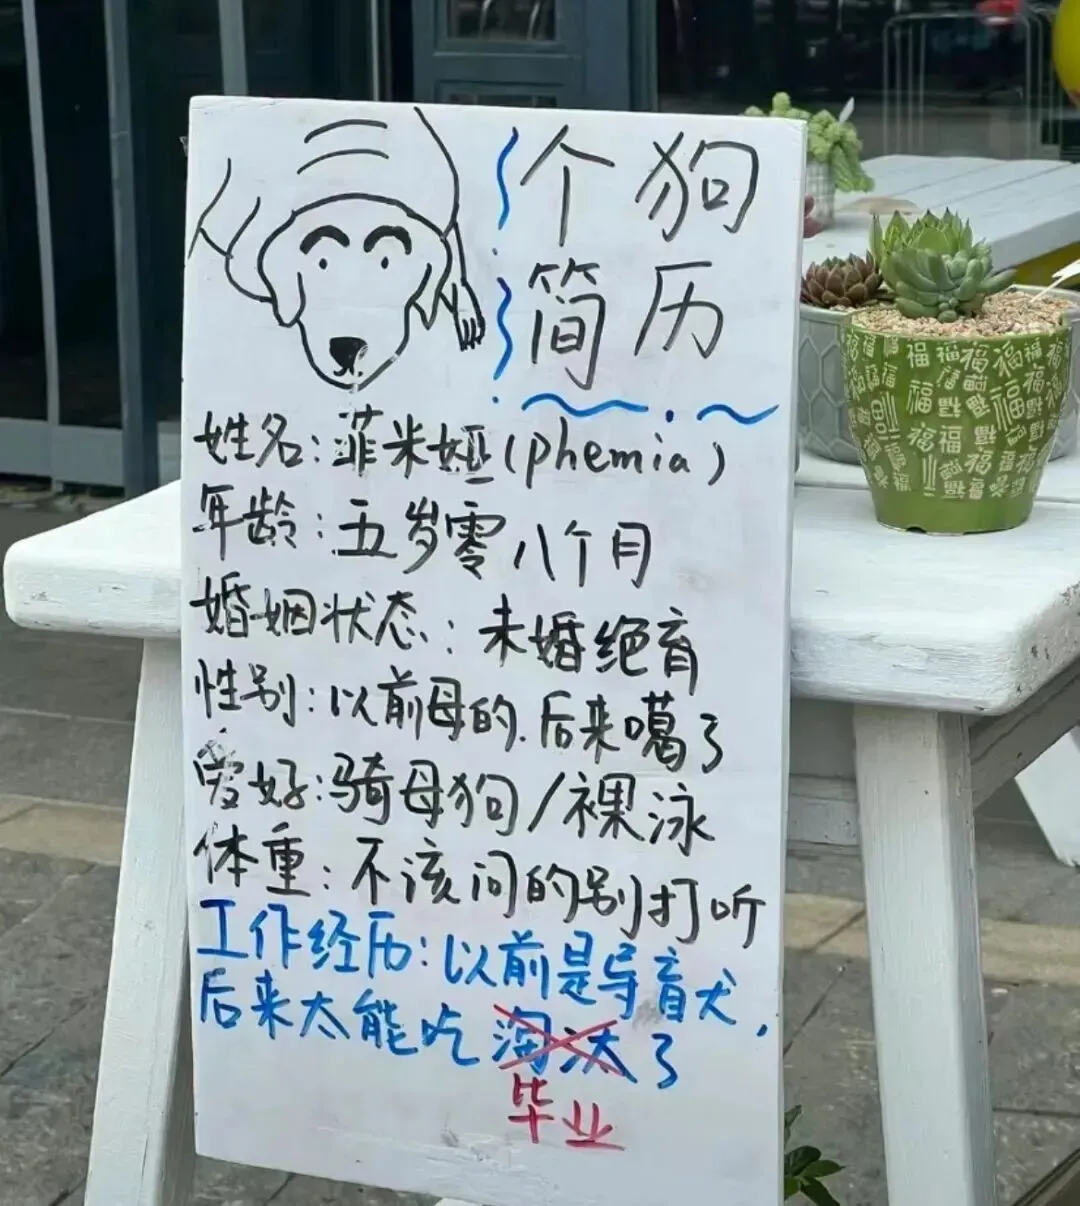 个狗
简历
姓名：菲米娅(phemia)
年龄：五岁零八个月
婚姻状态：未婚绝育
性别：以前母的.后来噶了
爱好：骑母狗/裸泳
体重：不该问的别打听
工作经历：以前是导盲犬，
后来太能吃淘汰了
毕业
福福福福福福福福